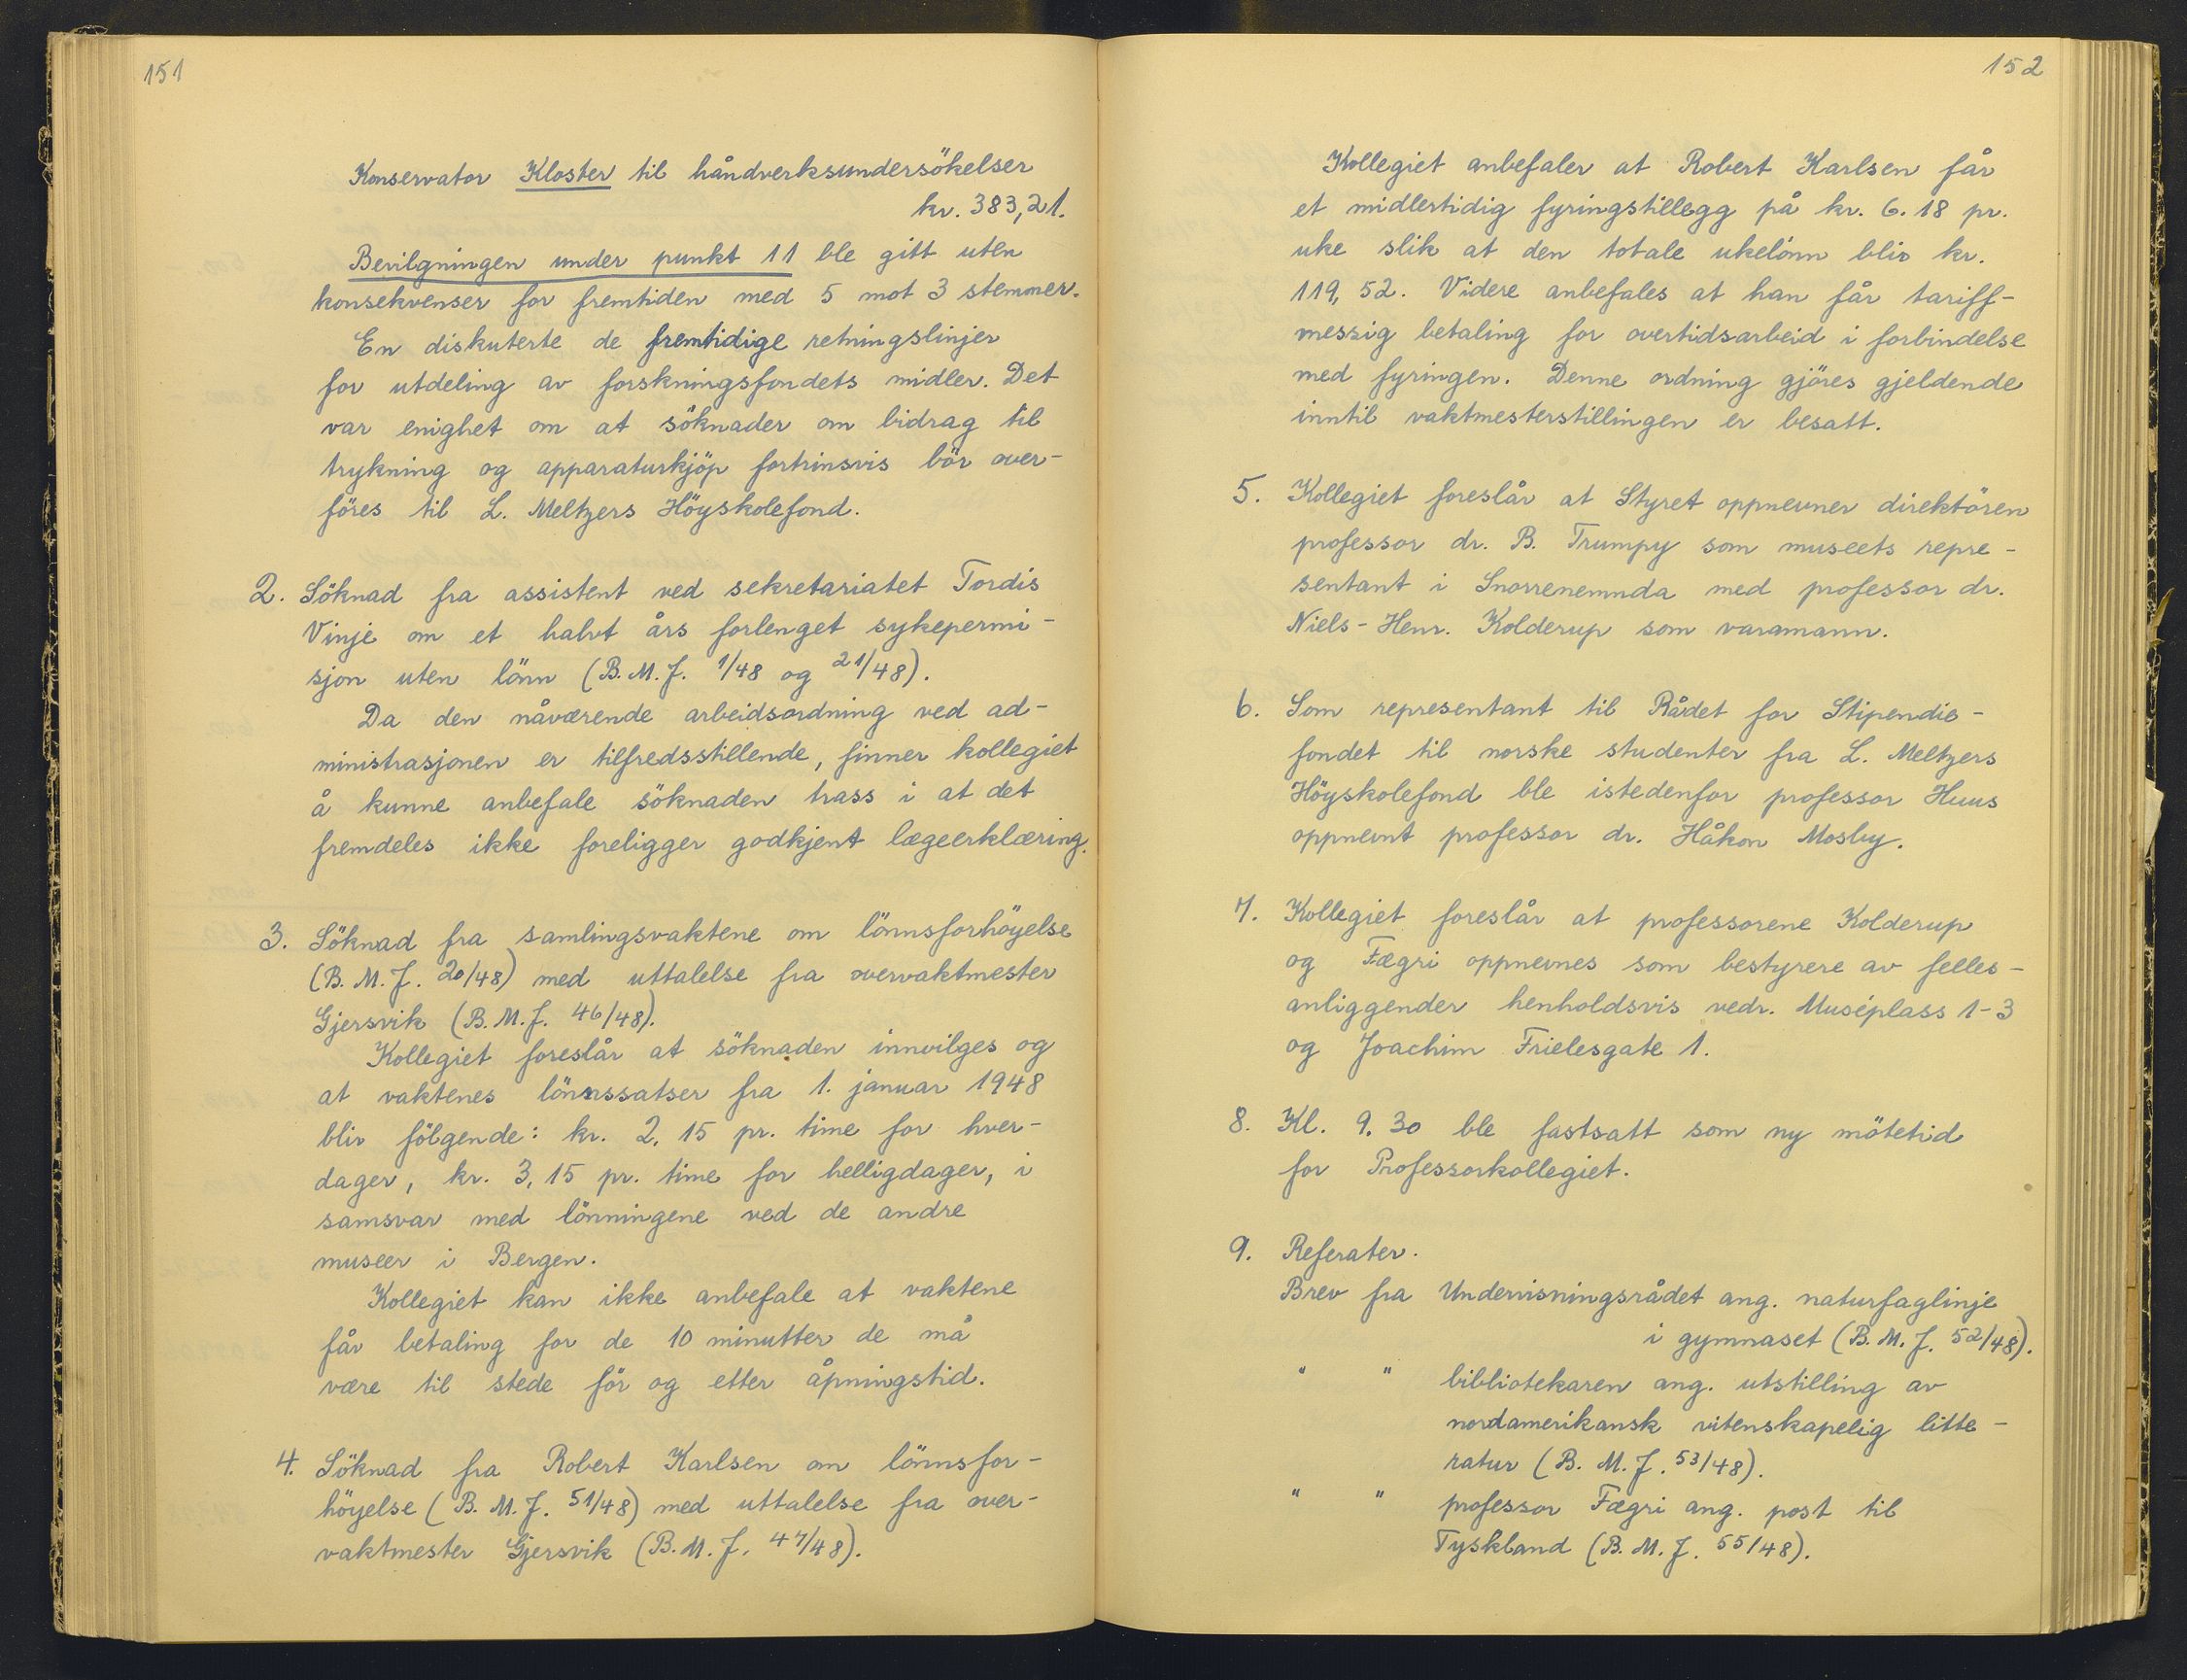 151
Konservator Kloster til håndverksundersökelser
kr. 383,21.
Bevilgningen under punkt 11 ble gitt uten
konsekvenser for fremtiden med 5 mot 3 stemmer.
En diskuterte de fremtidige retningslinjer
for utdeling av forskningsfondets midler. Det
var enighet om at söknader om bidrag til
trykning og apparaturkjöp fortrinsvis bör over-
föres til L. Meltzers Höyskolefond.
2. Söknad fra assistent ved sekretariatet Tordis
Vinje om et halvt års forlenget sykepermi-
sjon uten lönn (B.M.J. 1/48 og 21/48).
Da den nåværende arbeidsordning ved ad-
ministrasjonen er tilfredsstillende, finner kollegiet
å kunne anbefale söknaden trass i at det
fremdeles ikke foreligger godkjent lægeerklæring.
3. Söknad fra samlingsvaktene om lönnsforhöyelse
(B.M.J. 20/48) med uttalelse fra overvaktmester
Gjersvik (B.M.J. 46/48).
Kollegiet foreslår at söknaden innvilges og
at vaktenes lönnssatser fra 1. januar 1948
blir fölgende: kr. 2,15 pr. time for hver-
dager, kr. 3,15 pr. time for helligdager, i
samsvar med lönningene ved de andre
museer i Bergen.
Kollegiet kan ikke anbefale at vaktene
får betaling for de 10 minutter de må
være til stede för og etter åpningstid.
4. Söknad fra Robert Karlsen om lönnsfor-
höyelse (B.M.J. 51/48) med uttalelse fra over-
vaktmester Gjersvik (B.M.J. 47/48).
152
Kollegiet anbefaler at Robert Karlsen får
et midlertidig fyringstillegg på kr. 6.18 pr.
uke slik at den totale ukelönn blir kr.
119,52. Videre anbefales at han får tariff-
messig betaling for overtidsarbeid i forbindelse
med fyringen. Denne ordning gjöres gjeldende
inntil vaktmesterstillingen er besatt.
5. Kollegiet foreslår at Styret oppnevner direktören
professor dr. B. Trumpy som museets repre-
sentant i Snorrenemnda med professor dr.
Niels-Henr. Kolderup som varamann.
6. Som representant til Rådet for Stipendie-
fondet til norske studenter fra L. Meltzers
Höyskolefond ble istedenfor professor Huus
oppnevnt professor dr. Håkon Mosby.
7. Kollegiet foreslår at professorene Kolderup
og Fægri oppnevnes som bestyrere av felles-
anliggender henholdsvis vedr. Muséplass 1-3
og Joachim Frielesgate 1.
8. Kl. 9.30 ble fastsatt som ny mötetid
for Professorkollegiet.
9. Referater.
Brev fra Undervisningsrådet ang. naturfaglinje
i gymnaset (B.M.J. 52/48).
" " bibliotekaren ang. utstilling av
nordamerikansk vitenskapelig litte-
ratur (B.M.J. 53/48).
" " professor Fægri ang. post til
Tyskland (B.M.J. 55/48).